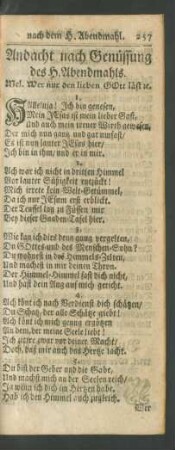 nach dem H. Abendmahl. 257
Andacht nach Genüssung
des H. Abendmahls.
Mel. Wer nur den lieben GOtt läst ꝛc.
1.
Halleluja! Ich bin genesen,
Mein JEsus ist mein lieber Gast,
Und auch mein treuer Wirth gewesen,
Der mich
Es ist nun lauter JEsus hier,
Ich bin in ihm, und er in mir.
2.
Ach war ich nicht in dritten Himmel
Vor lauter Süßigkeit verzückt!
Mich irrete kein Welt-Getümmel,
Da ich nur JEsum erst erblickt.
Der Teuffel lag zu Füssen mir
Bey dieser Gnaden-Tafel hier.
3.
Wie kan ich dies dann gnug vergelten,
Du GOttes und des Menschen-Sohn?
Du wohnest in des Himmels-Zelten,
Und machst in mir deinen Thron.
Der Himmel-Himmel fast dich nicht,
Und hast dein Aug auf mich gericht.
4.
Ach könt ich nach Verdienst dich schätzen,
Du Schatz, der alle Schätze giebt!
Ach könt ich mich genug ergötzen
An dem, der meine Seele liebt!
Ich zittre zwar vor deiner Macht,
Doch, daß mir auch das Hertze lacht.
5.
Du bist der Geber und die Gabe,
Und machst mich an der Seelen reich,
Je wenn ich dich in Hertzen habe,
Hab ich den Himmel auch zugleich.
Wir